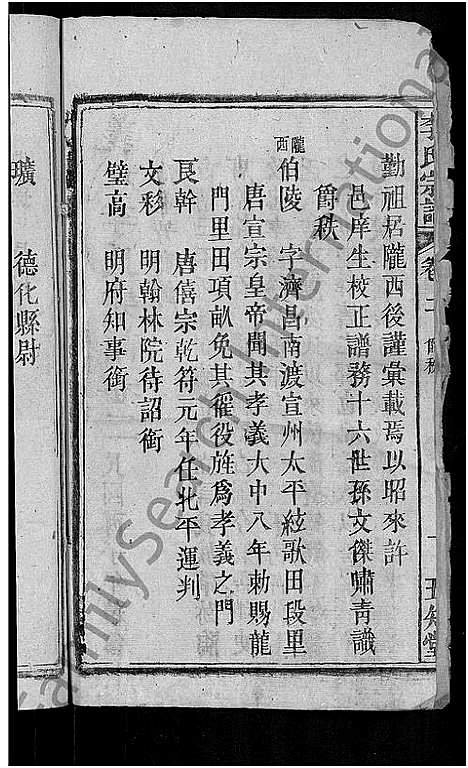 李氏宗譜 卷二
勤祖居隴西後謹彙載焉以昭來許
邑庠生校正譜務十六世孫文傑嘯青識
爵秩
隴西
伯陵 字濟昌南渡宣州太平絃歌田段里
唐宣宗皇帝聞其孝義大中八年勅賜龍
門里田項畝免其徭役旌爲孝義之門
良幹 唐僖宗乾符元年任北平運判
文彩 明翰林院待詔銜
璧高 明府知事銜
曠 德化縣尉
FamilySearch International